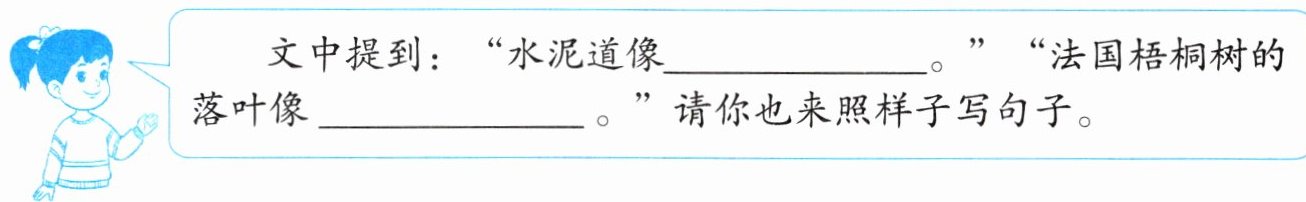 文中提到：“水泥道像______________。”“法国梧桐树的
落叶像______________。”请你也来照样子写句子。